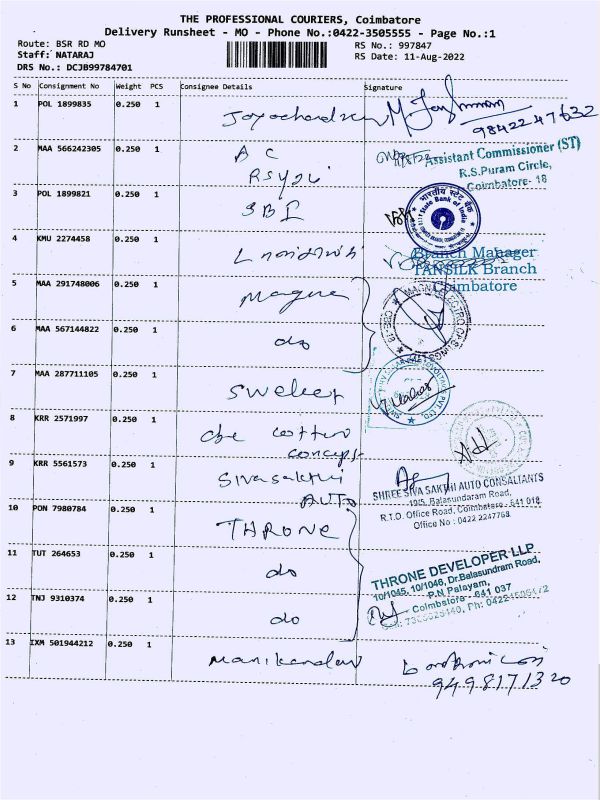 THE PROFESSIONAL COURIERS, Coimbatore
Delivery Runsheet - MO - Phone No.:0422-3505555 - Page No.:1
Route: BSR RD MO
RS No.: 997847
Staff: NATARAJ
RS Date: 11-Aug-2022
DRS No.: DCJB99784701
S No Consignment No Weight PCS Consignee Details Signature
1 POL 1899835 0.250 1
98422 47632
2 MAA 566242305 0.250 1 A C
Assistant Commissioner (ST)
R.S.Puram Circle,
Coimbatore- 18
3 POL 1899821 0.250 1 SBI
भारतीय स्टेट बैंक
State Bank of India
4 KMU 2274458 0.250 1
Branch Manager
TANSILK Branch
Coimbatore
5 MAA 291748006 0.250 1 Magna
6 MAA 567144822 0.250 1 do
7 MAA 287711105 0.250 1
8 KRR 2571997 0.250 1 cbe cotton
concepts
9 KRR 5561573 0.250 1 Sivasakthi
AUTO
SHREE SIVA SAKTHI AUTO CONSALIANTS
19/5, Balasundaram Road,
R.T.O. Office Road, Coimbatore - 641 018.
Office No : 0422 2247758
10 PON 7980784 0.250 1 THRONE
11 TUT 264653 0.250 1 do
THRONE DEVELOPER LLP
10/1045, 10/1046, Dr.Balasundram Road,
P.N.Palayam,
Coimbatore - 641 037
12 TNJ 9310374 0.250 1 do
13 IXM 501944212 0.250 1 Manikandan
9498171320